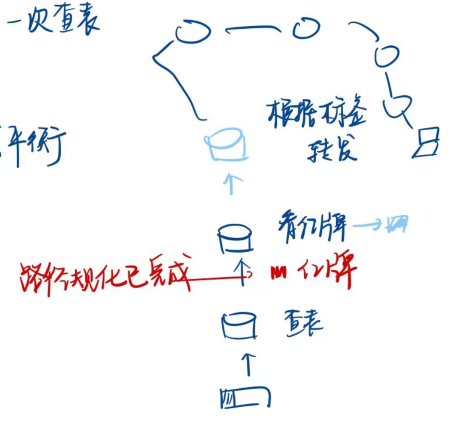 一次查表
平衡
根据标签
转发
看红牌
路径规化已完成
红牌
查表